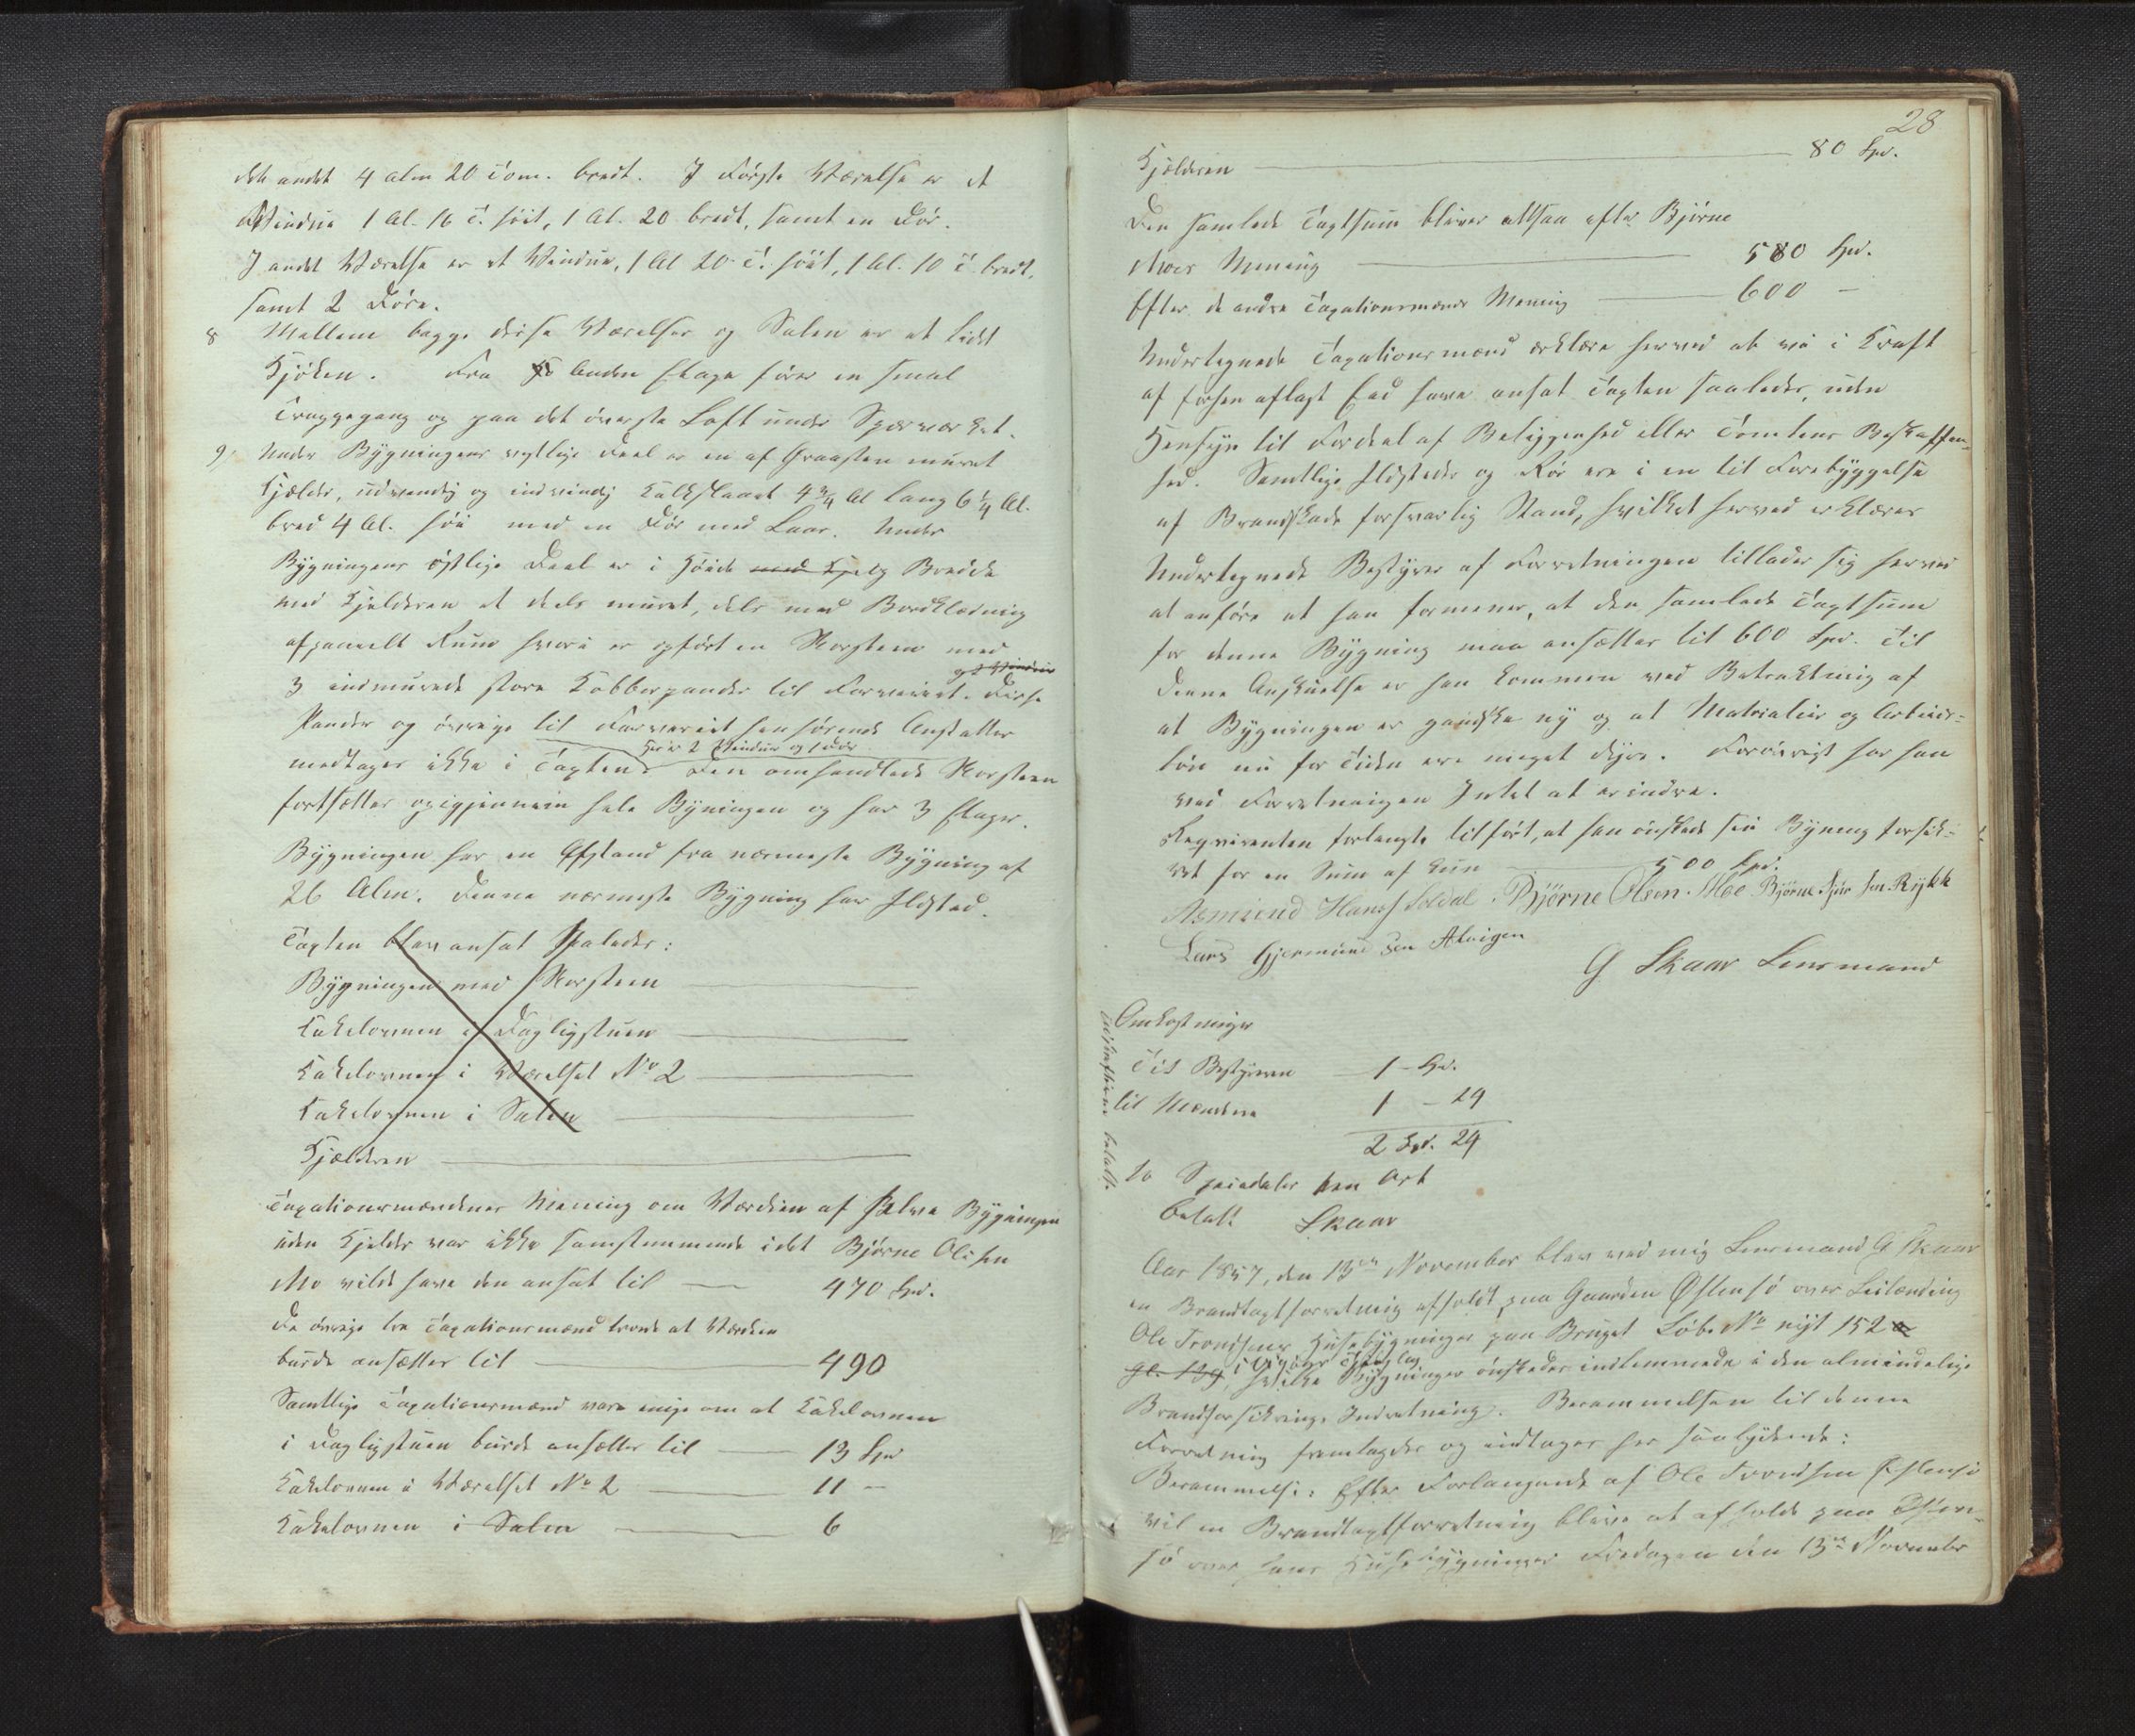 det andet 4 Alm 20 Tom. bredt. I Første Værelse er et
Vindue 1 Al. 16 T. høit, 1 Al. 20 bredt, samt en Dør.
I andet Værelse er et Vindue, 1 Al 20 T. høit, 1 Al. 10 T. bredt,
samt 2 Døre.
8 Mellem begge disse Værelser og Salen er et lidet
Kjøken. Fra Anden Etage fører en smal
Trappegang op paa det øverste Loft under Sperreværket.
9 Under Bygningens vestlige Deel er en af Graasten muret
Kjelder, udvendig og indvendig kalkslaaet 9 3/4 Al lang 6 1/4 Al.
bred 4 Al. høi med en Dør med Laas. Under
Bygningens østlige Deel er i Høide med Kje og Bredde
med Kjelderen et deels muret, dels med Bordklædning
afpanelt Rum hvori er opført en Skorsten med
og 2 Vinduer
3 indmurede store Kobberpander til Farveriet. Disse
Pander og øvrige til Farveriet henhørende Anstalter
Her er 2 Vinduer og 1 Dør
medtages ikke i Taxten. Den omhandlede Skorsten
fortsættes opigjennem hele Bygningen og har 3 Etager.
Bygningen har en Afstand fra nærmeste Bygning af
26 Alm. Denne nærmeste Bygning har Ildsted.
Taxten blev ansat saaledes:
Bygningen med Skorsteen
Kakelovnen i Dagligstuen
Kakelovnen i Værelset No 2
Kakelovnen i Salen
Kjælderen
Taxationsmændenes Mening om Værdien af selve Bygningen
uden Kjelder var ikke samstemmende idet Bjørne Olsen
Mo vilde have den ansat til 470 Spd.
De øvrige tre Taxationsmænd troede at Værdien
burde ansættes til 490
Samtlige Taxationsmænd vare enige om at Kakelovnen
i Dagligstuen burde ansættes til 13 Spd
Kakelovnen i Værelset No 2 11 —
Kakelovnen i Salen 6
28
Kjælderen 80 Spd.
Den samlede Taxtsum bliver altsaa efter Bjørne
Moes Mening 580 Spd.
Efter de andre Taxationsmænds Mening 600 —
Undertegnede Taxationsmænd erklære herved at vi i Kraft
af forhen aflagt Eed have ansat Taxten saaledes, uden
Hensyn til Fordeel af Beliggenhed eller Tomtens Beskaffen-
hed. Samtlige Ildsteder og Rør ere i en til Forebyggelse
af Brandskade forsvarlig Stand, hvilket herved erklæres
Undertegnede Bestyrer af Forretningen tillader sig herved
at anføre at han formener, at den samlede Taxtsum
for denne Bygning maa ansættes til 600 Spd. Til
denne Anskuelse er han kommen ved Betraktning af
at Bygningen er ganske ny og at Materialier og Arbeids-
løn nu for Tiden ere meget dyre. Forøvrigt har han
ved Forretningen Intet at erindre.
Reqvirenten forlangte tilført, at han ønskede sin Bygning forsik-
ret for en Sum af kun 500 Spd.
Asmund Hansf Soldal. Bjørne Olsen Moe Bjørne Siur sen Rykk
Lars Gjermund sen Alvigen
G Skaar Lensmand
Omkostninger
Til Bestyreren 1 - Spd.
til Mændene 1 - 24
2 Spd. 24
to Speciedaler en Ort
betalt Skaar
Aar 1857, den 13de November blev ved mig Lensmand G Skaar
en Brandtaxtforretning afholdt paa Gaarden Østensø over Leilænding
Ole Trondsens Husebygninger paa Bruget Løb. No nyt 152
i Vigørs Thinglag
gl. 139, hvilke Bygninger ønskedes indlemmede i den almindelige
Brandforsikrings Indretning. Berammelsen til denne
Forretning fremlagdes og indtages her saalydende:
Berammelse: Efter Forlangende af Ole Trondsen Østensø
vil en Brandtaxtforretning blive at afholde paa Østen-
sø over hans Husebygninger Fredagen den 13de November